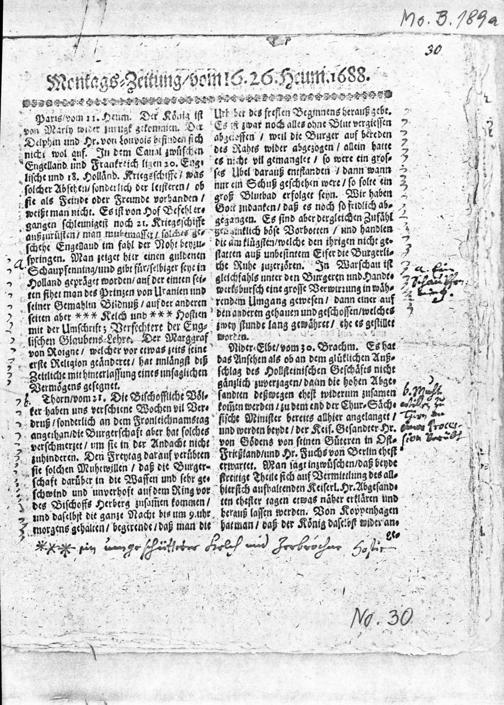 Mo. B. 189a
30
Montags-Zeitung/vom 16. 26. Heum. 1688.
Paris/vom 11. Heum. Der König ist
von Marly wider zurugk gekommen. Der
Delphin und Hr. von Louvois befinden sich
nicht wol auf. In dem Canal zwüschen
Engelland und Frankreich ligen 20. Eng-
lische und 18. Holländ. Kriegsschiffe/ was
solcher Absehen/ sonderlich der letsteren/ ob
sie als Feinde oder Freunde vorhanden/
weißt man nicht. Es ist von Hof Befehl er-
gangen schleunigest noch 21. Kriegsschiffe
außzurüsten/ man muhtmasset/ solches ge-
schehe Engelland im fahl der Noht beyzu-
springen. Man zeiget hier einen guldenen
Schaupfenning/ und gibt für/ selbiger seye in
Holland gepräget worden/ auf der einen sei-
ten sihet man des Prinzen von Uranien und
seiner Gemahlin Bildnuß/ auf der anderen
seiten aber *** Kelch und *** Hostien
mit der Umschrift; Verfechtere der Eng-
lischen Glaubens-Lehre. Der Marggraf
von Roigne/ welcher vor etwas zeits seine
erste Religion geänderet/ hat unlängst diß
Zeitliche mit hinterlassung eines unsaglichen
Vermögens gesegnet.
Thorn/vom 21. Die Bischoffliche Völ-
ker haben uns verschiene Wochen vil Ver-
druß/ sonderlich an dem Fronleichnamstag
angethan/die Bürgerschaft aber hat solches
verschmerzet/ um sie in der Andacht nicht
zuhinderen. Den Freytag darauf verübten
sie solchen Muhtwillen/ daß die Burger-
schaft darüber in die Waffen und sehr ge-
schwind und unverhoft auf dem Ring vor
des Bischoffs Herberg zusamen kommen/
und daselbst die ganze Nacht bis um 9. uhr
morgens gehalten/ begerende/ daß man die
Urheber des freflen Beginnens herauß gebe.
Es ist zwar noch alles ohne Blut vergiessen
abgeloffen/ weil die Burger auf bereden
des Rahts wider abgezogen/ allein hatte
es nicht vil gemanglet/ so were ein gros-
ses Übel darauß entstanden/ dann wann
nur ein Schuß geschehen were/ so solte ein
groß Blutbad erfolget seyn. Wir haben
Gott zudanken/ daß es noch so fridlich ab-
gegangen. Es sind aber dergleichen Zufähl
gemeinlich böse Vorbotten/ und handlen
die am klügsten/ welche den ihrigen nicht ge-
statten auß unbesintem Eifer die Bürgerli-
che Ruhe zuzerstören. In Warschau ist
gleichfahls unter den Burgeren und Hands
werksbursch eine grosse Verwirrung in wäh-
rendem Umgang gewesen/ dann einer auf
den anderen gehauen und geschossen/welches
zwey stunde lang gewähret/ ehe es gestillet
worden.
Nider-Elbe/vom 30. Brachm. Es hat
das Ansehen als ob an dem glüklichen Auß-
schlag des Hollsteinischen Geschäfts nicht
gänzlich zuverzagen/dann die hohen Abge-
sandten deßwegen ehest widerum zusamen
kommen werden/ zu dem end der Chur-Säch-
sische Minister bereits allhier angelanget/
und werden beyde/ der Keis. Gesandter Hr.
von Gödens von seinen Güteren in Ost-
Frießland/und Hr. Fuchs von Berlin ehest
erwartet. Man sagt inzwüschen/daß beyde
streitige Theile sich auf Vermittelung des all-
hier sich aufhaltenden Keiserl. Hr. Abgesand-
ten ehester tagen etwas näher erklären und
herauß lassen werden. Von Koppenhagen
hat man/ daß der König daselbst wider an-
a.
a. Ein
b.
b.
*** ein umgeschütteter Kelch und Zerbrochne Hostie
No. 30